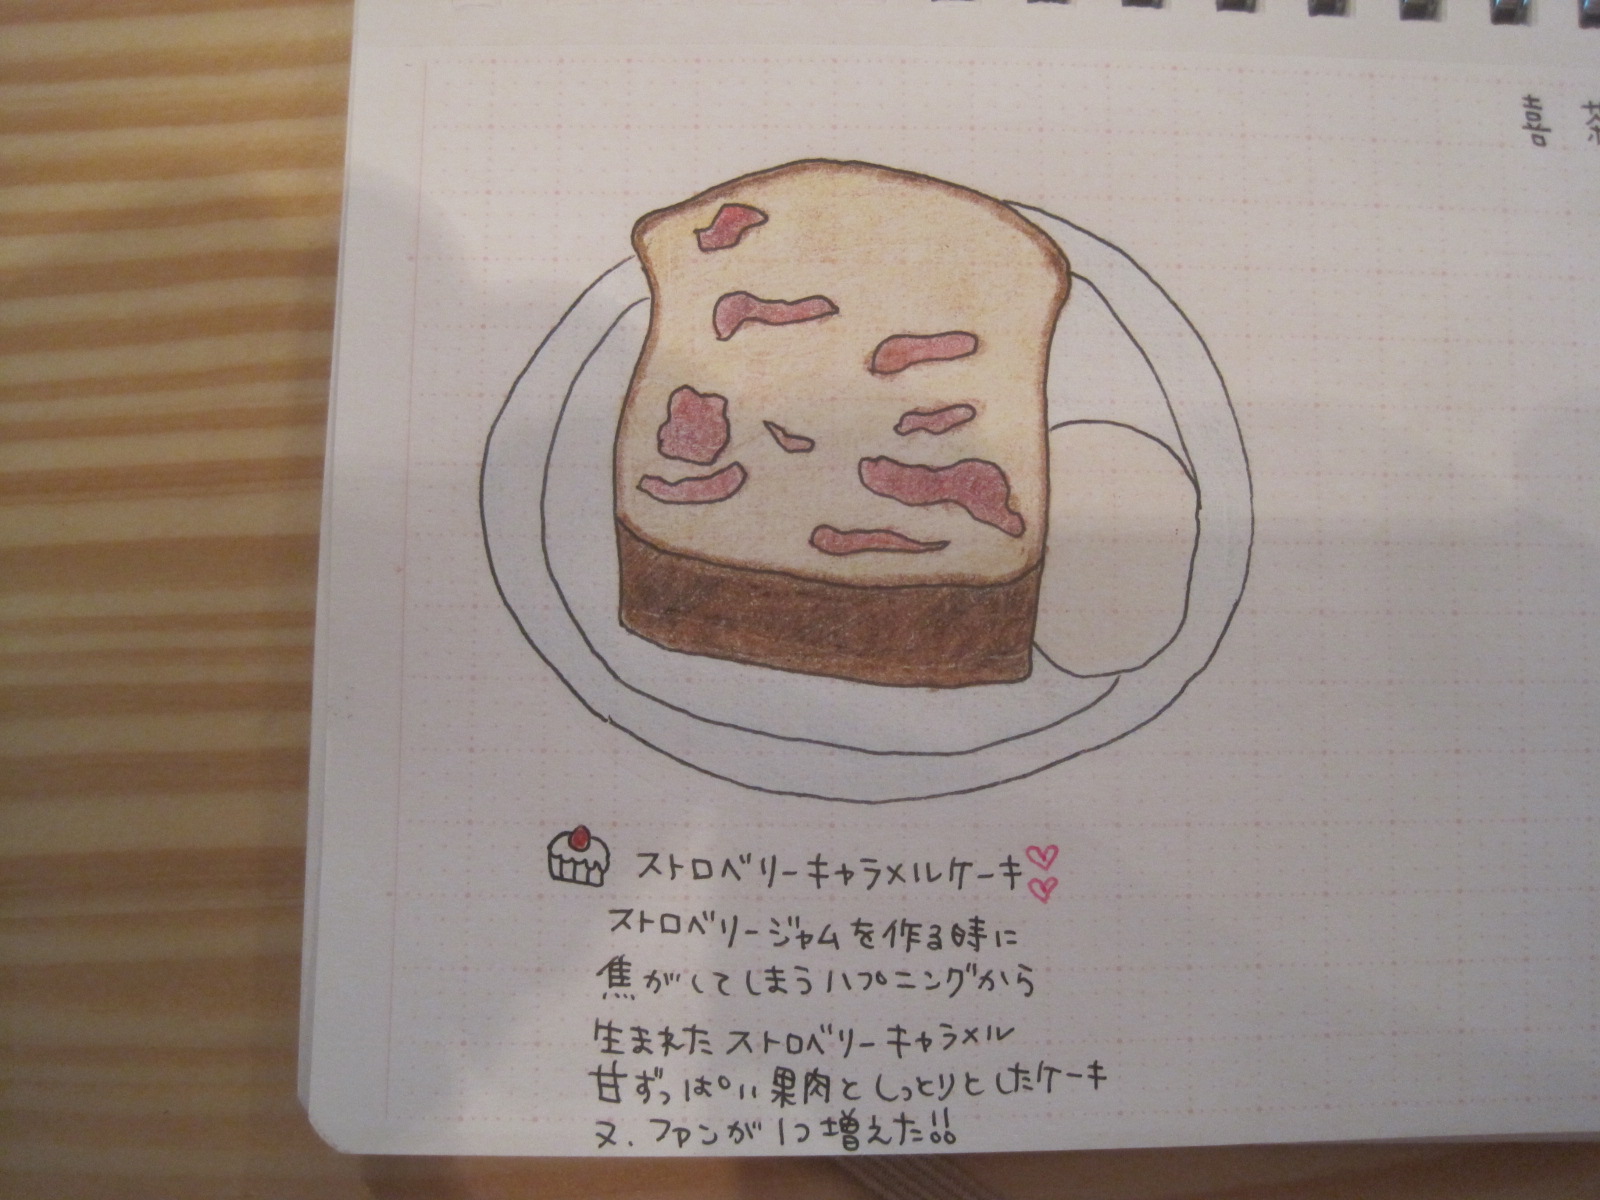 ストロベリーキャラメルケーキ
ストロベリージャムを作る時に
焦がしてしまうハプニングから
生まれたストロベリーキャラメル
甘ずっぱい果肉としっとりとしたケーキ
又、ファンが1つ増えた!!
喜 茶